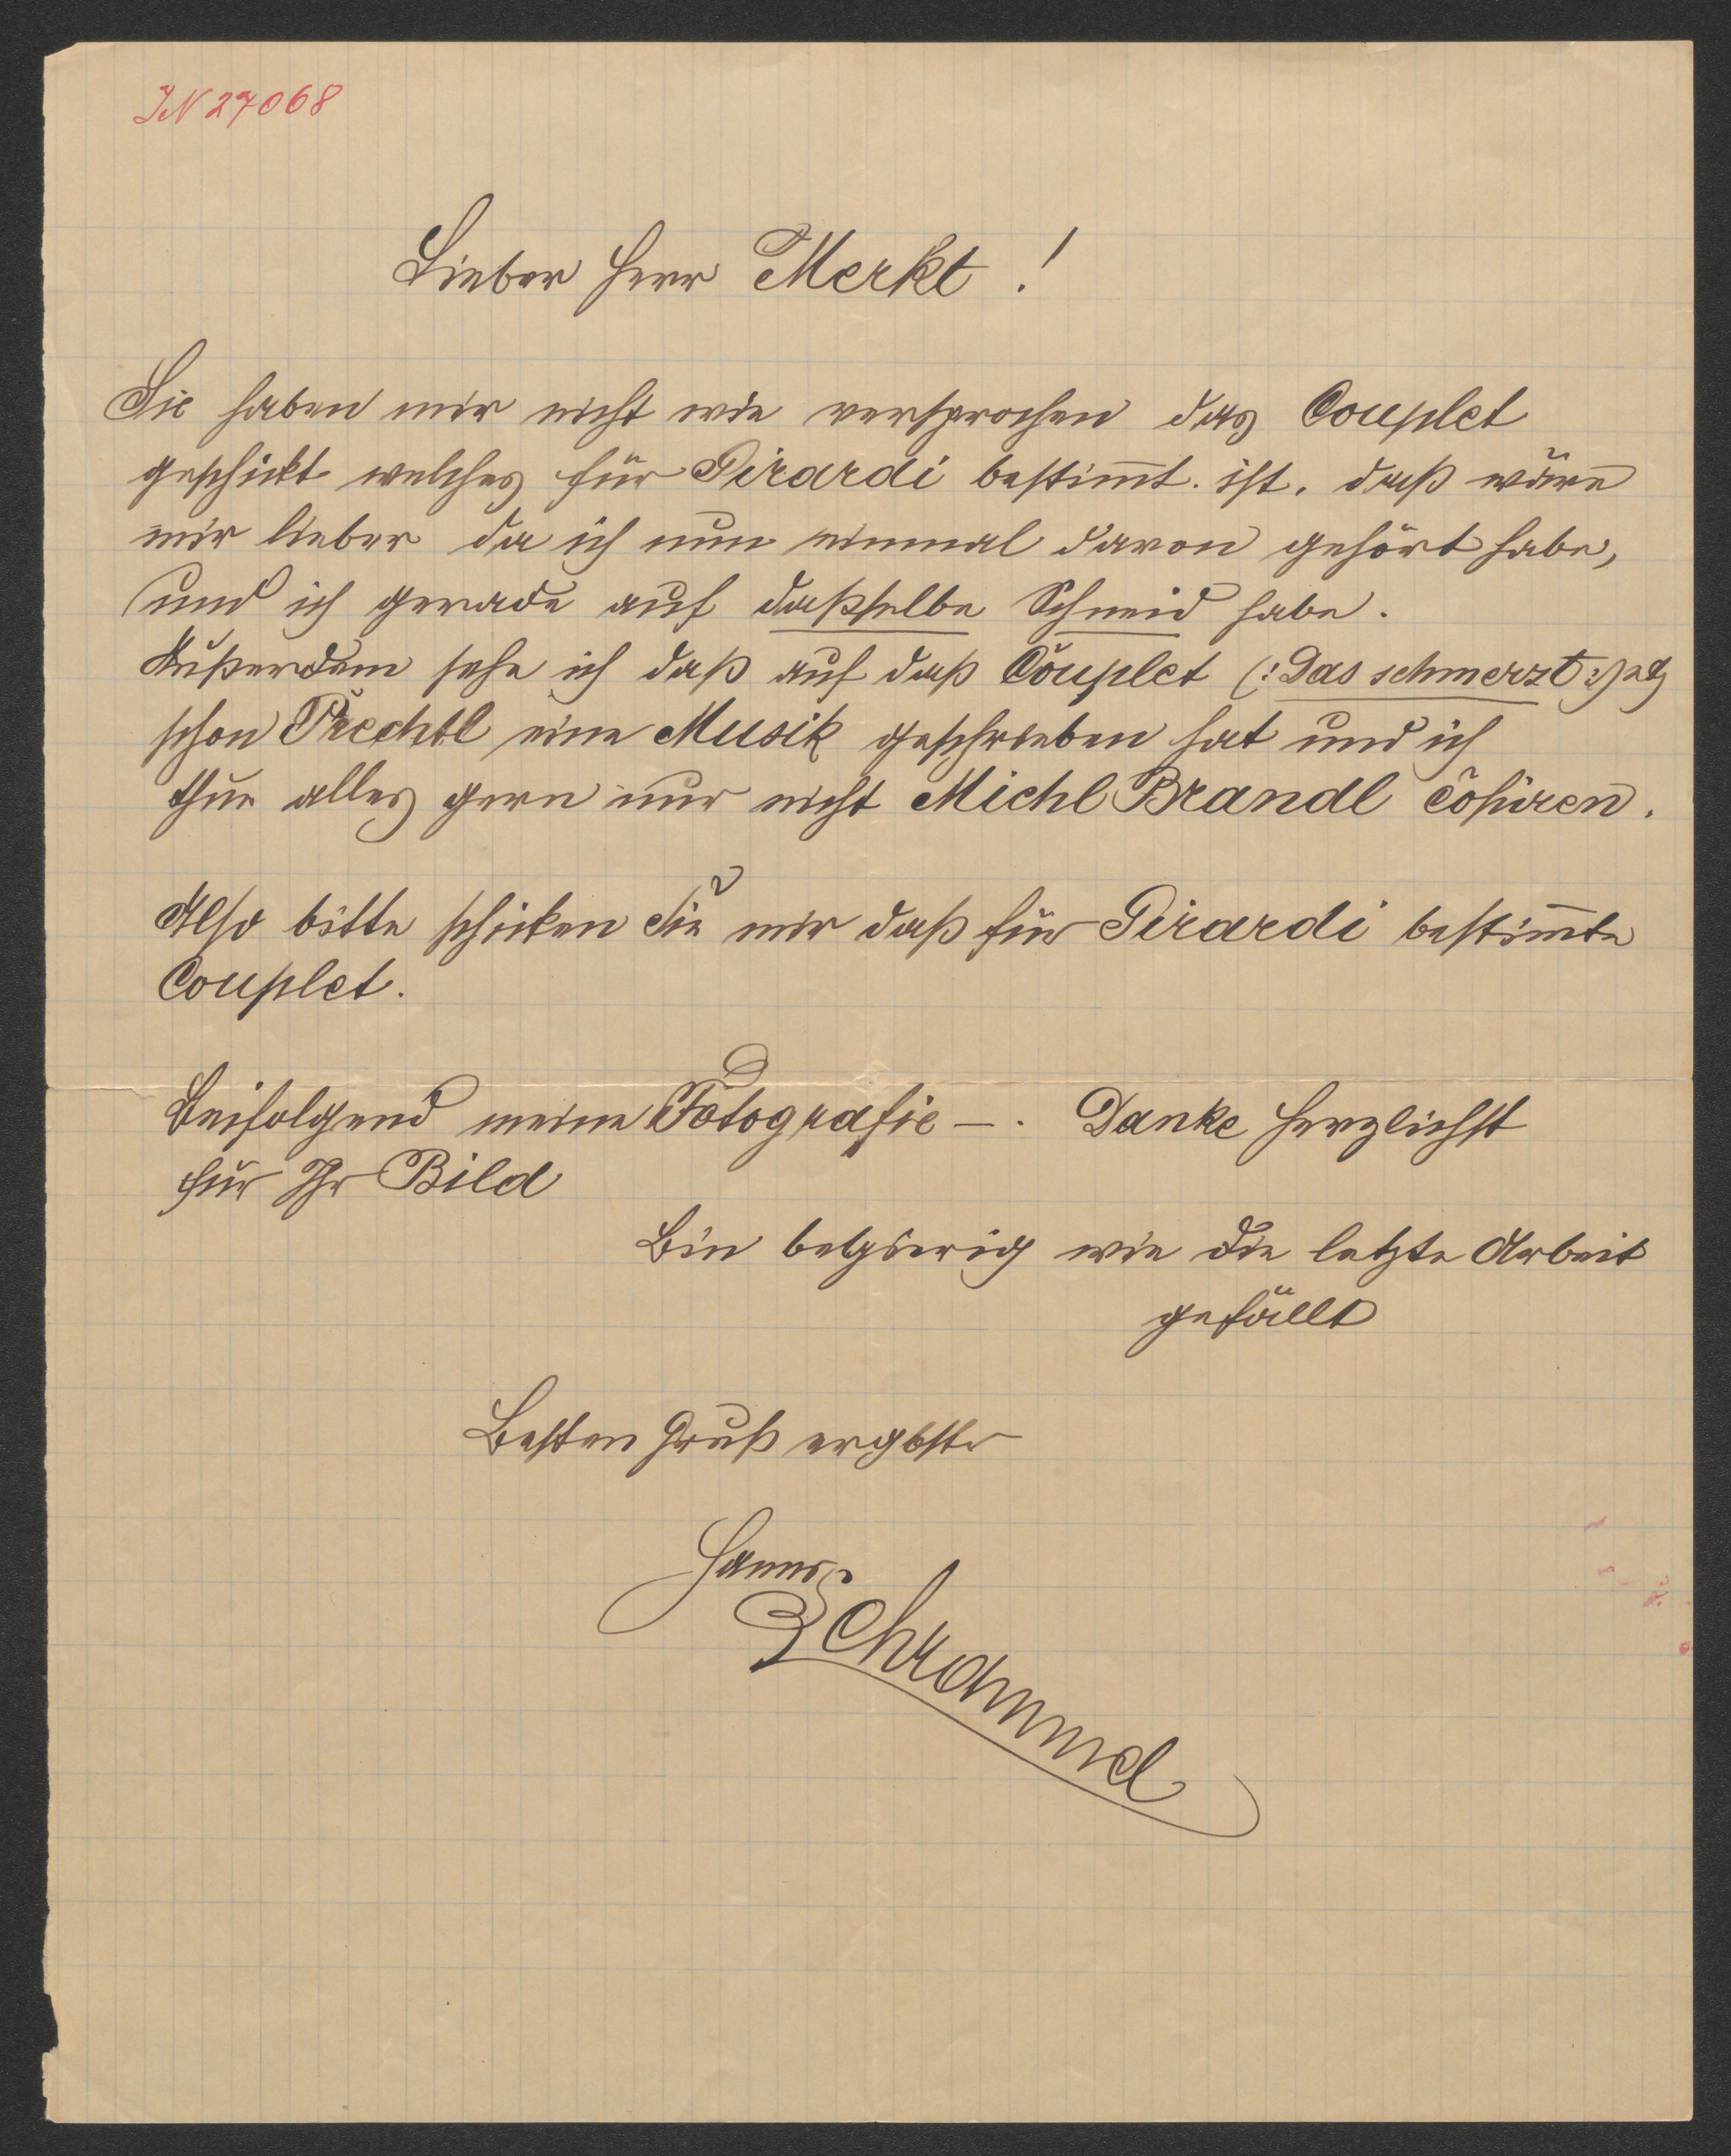 IN 27068
Lieber Herr Merkt!
Sie haben mir nicht wie versprochen das Couplet
geschickt welches für Girardi bestim̅t. ist. daß wäre
mir lieber da ich nun einmal davon gehört habe,
und ich gerade auf daßselbe Schneid habe.
Außerdem sehe ich daß auf daß Couplet (: Das schmerzt :)
schon Prechtl eine Musik geschrieben hat und ich
thue alles gern nur nicht Michl Brandl Copiren.
Also bitte schicken Sie mir daß für Girardi bestim̅te
Couplet.
Beifolgend meine Fotografie –. Danke herzlichst
für Ihr Bild
Bin begierig wie die letzte Arbeit
gefällt
Besten Gruß ergbstr
Hanns
Schrammel